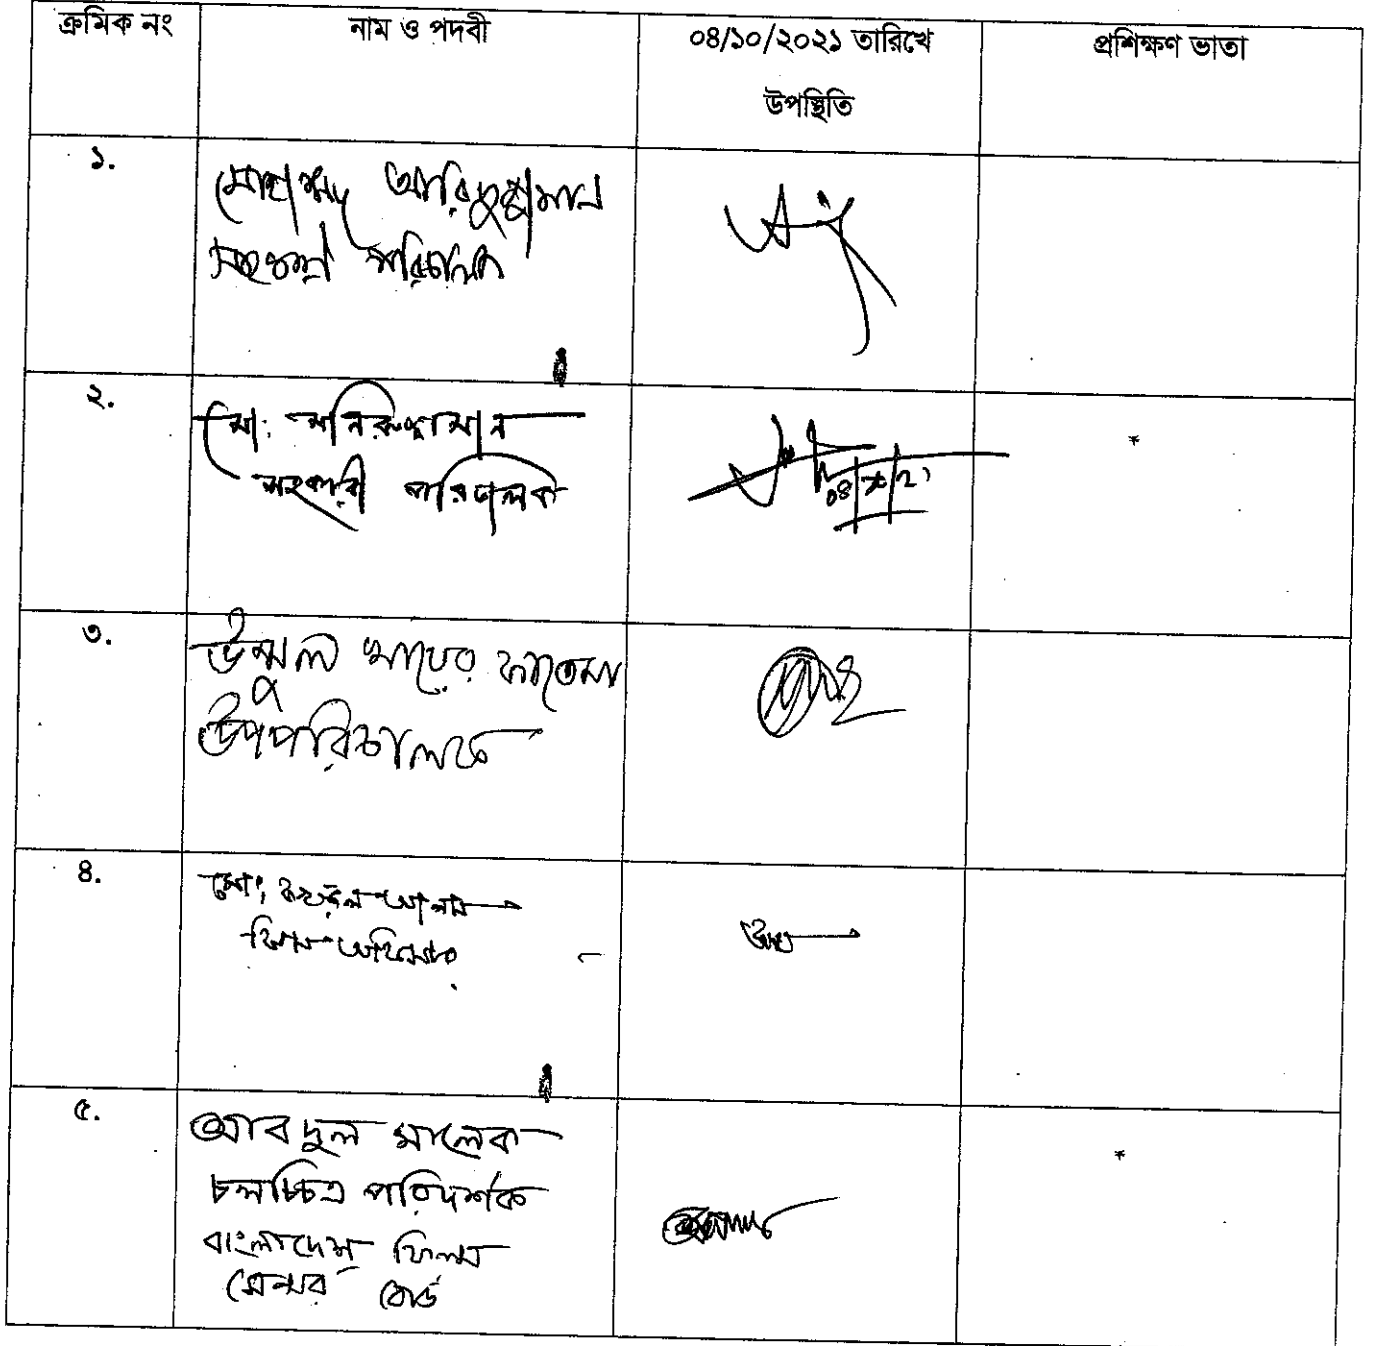 ক্রমিক নং নাম ও পদবী ০৪/১০/২০২১ তারিখে প্রশিক্ষণ ভাতা
উপস্থিতি
১. মোহাম্মদ আরিফুজ্জামান
পরিচালক
২. মো: মনিরুজ্জামান
সহকারী পরিচালক
৩. উম্মুল খায়ের ফাতেমা
উপপরিচালক
৪. মো: আলম
ফিল্ম অফিসার
৫. আবদুল মালেক
চলচ্চিত্র পরিদর্শক
বাংলাদেশ ফিল্ম
সেন্সর বোর্ড